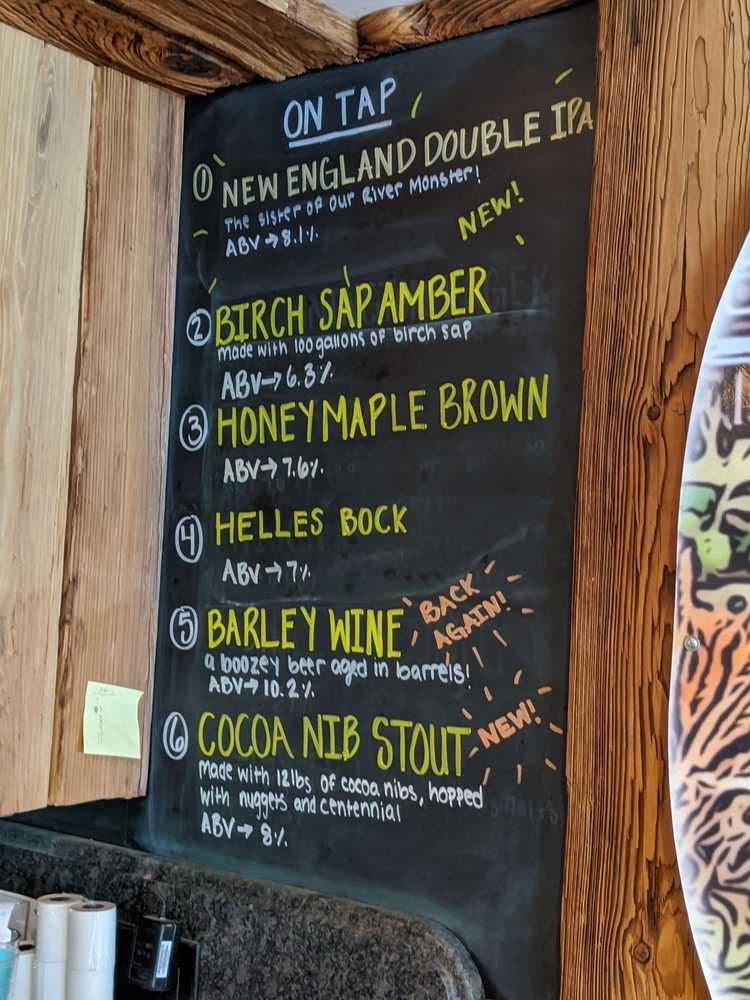 ON TAP
1 NEW ENGLAND DOUBLE IPA
The sister of our River Monster!
ABV→8.1%
NEW!
2 BIRCH SAP AMBER
made with 100 gallons of birch sap
ABV→6.3%
3 HONEY MAPLE BROWN
ABV→7.6%
4 HELLES BOCK
ABV→7%
5 BARLEY WINE
BACK
AGAIN!
a boozey beer aged in barrels!
ABV→10.2%
6 COCOA NIB STOUT
NEW!
made with 12lbs of cocoa nibs, hopped
with nuggets and centennial
ABV→8%